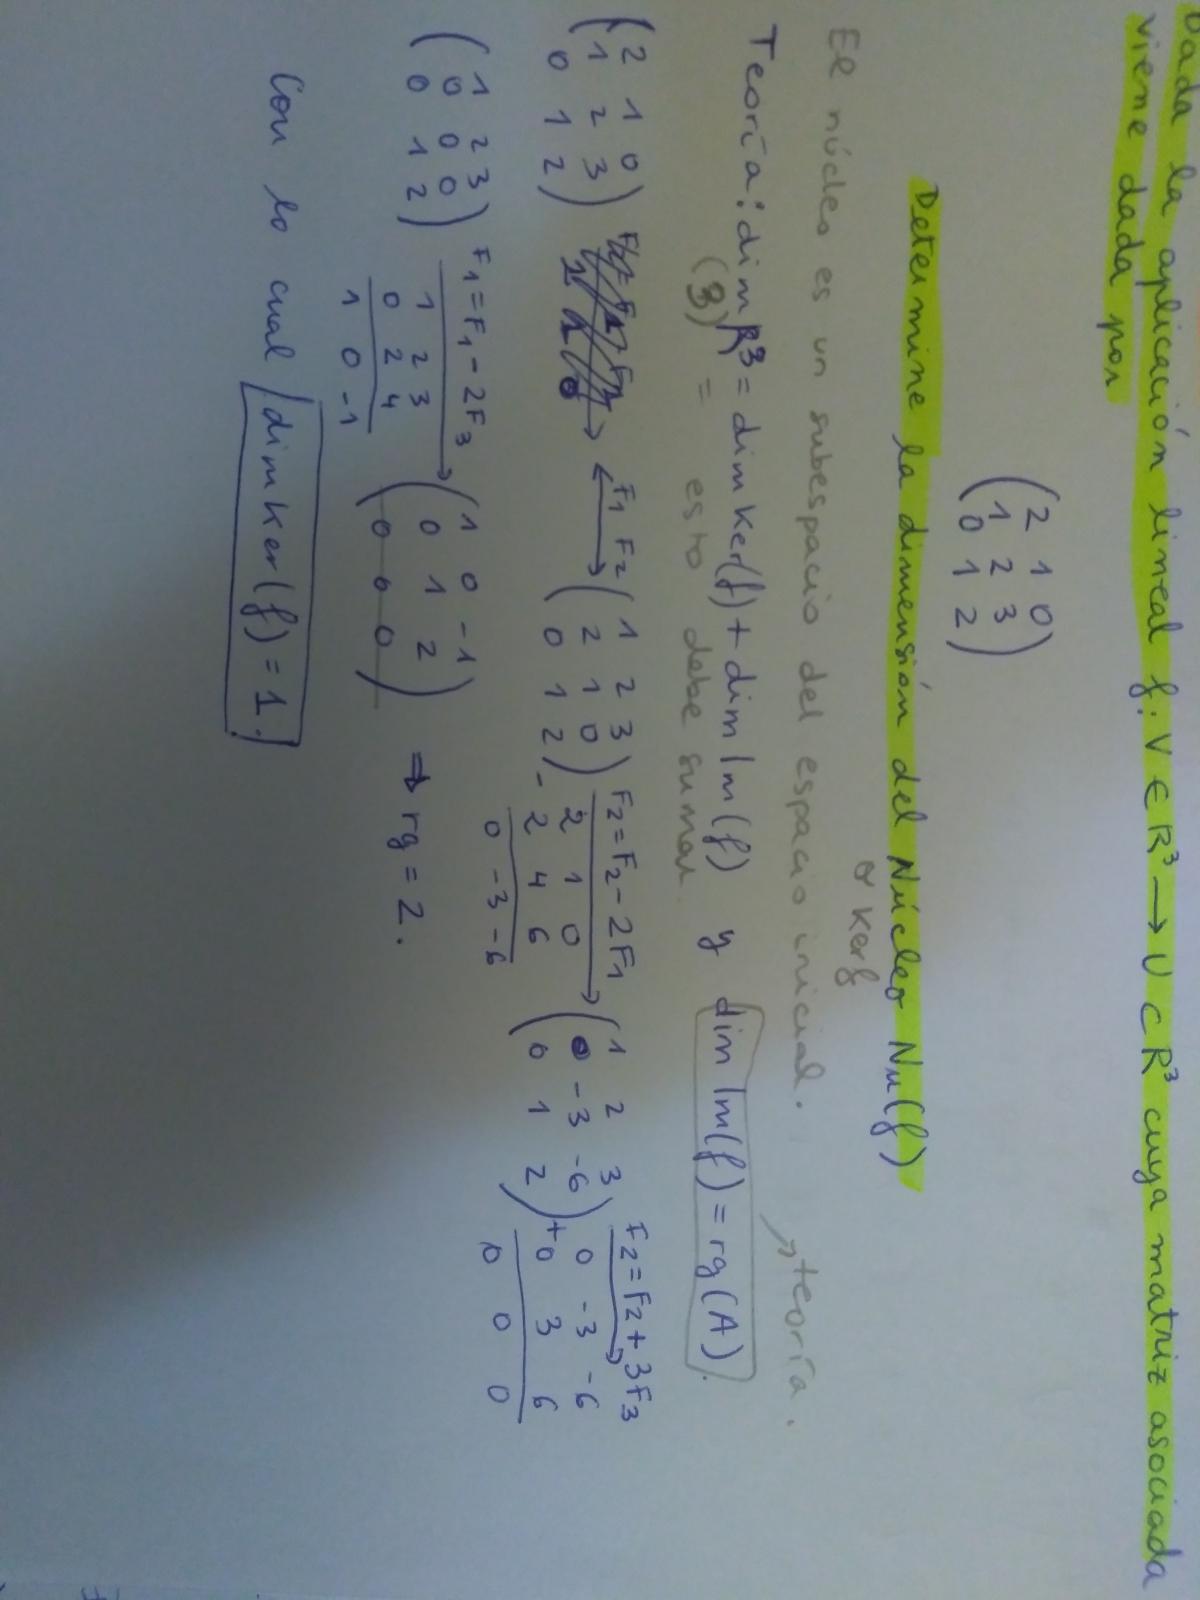 Dada la aplicación lineal f: V ∈ R³ → U ⊂ R³ cuya matriz asociada
viene dada por
(2 1 0
1 2 3
0 1 2)
Determine la dimensión del Núcleo Nu(f)
o Kerf
El núcleo es un subespacio del espacio inicial.
→ teoría.
Teoría: dim R³ = dim Ker(f) + dim Im(f) y dim Im(f) = rg(A).
(3) = esto debe sumar
(2 1 0
1 2 3
0 1 2)
F1 F2
(1 2 3
2 1 0
0 1 2)
F2 = F2 - 2F1
2 1 0
- 2 4 6
0 -3 -6
(1 2 3
0 -3 -6
0 1 2)
F2 = F2 + 3F3
0 -3 -6
+ 0 3 6
0 0 0
(1 2 3
0 0 0
0 1 2)
F1 = F1 - 2F3
1 2 3
0 2 4
1 0 -1
(1 0 -1
0 1 2
0 0 0)
⇒ rg = 2.
Con lo cual dim Ker(f) = 1.